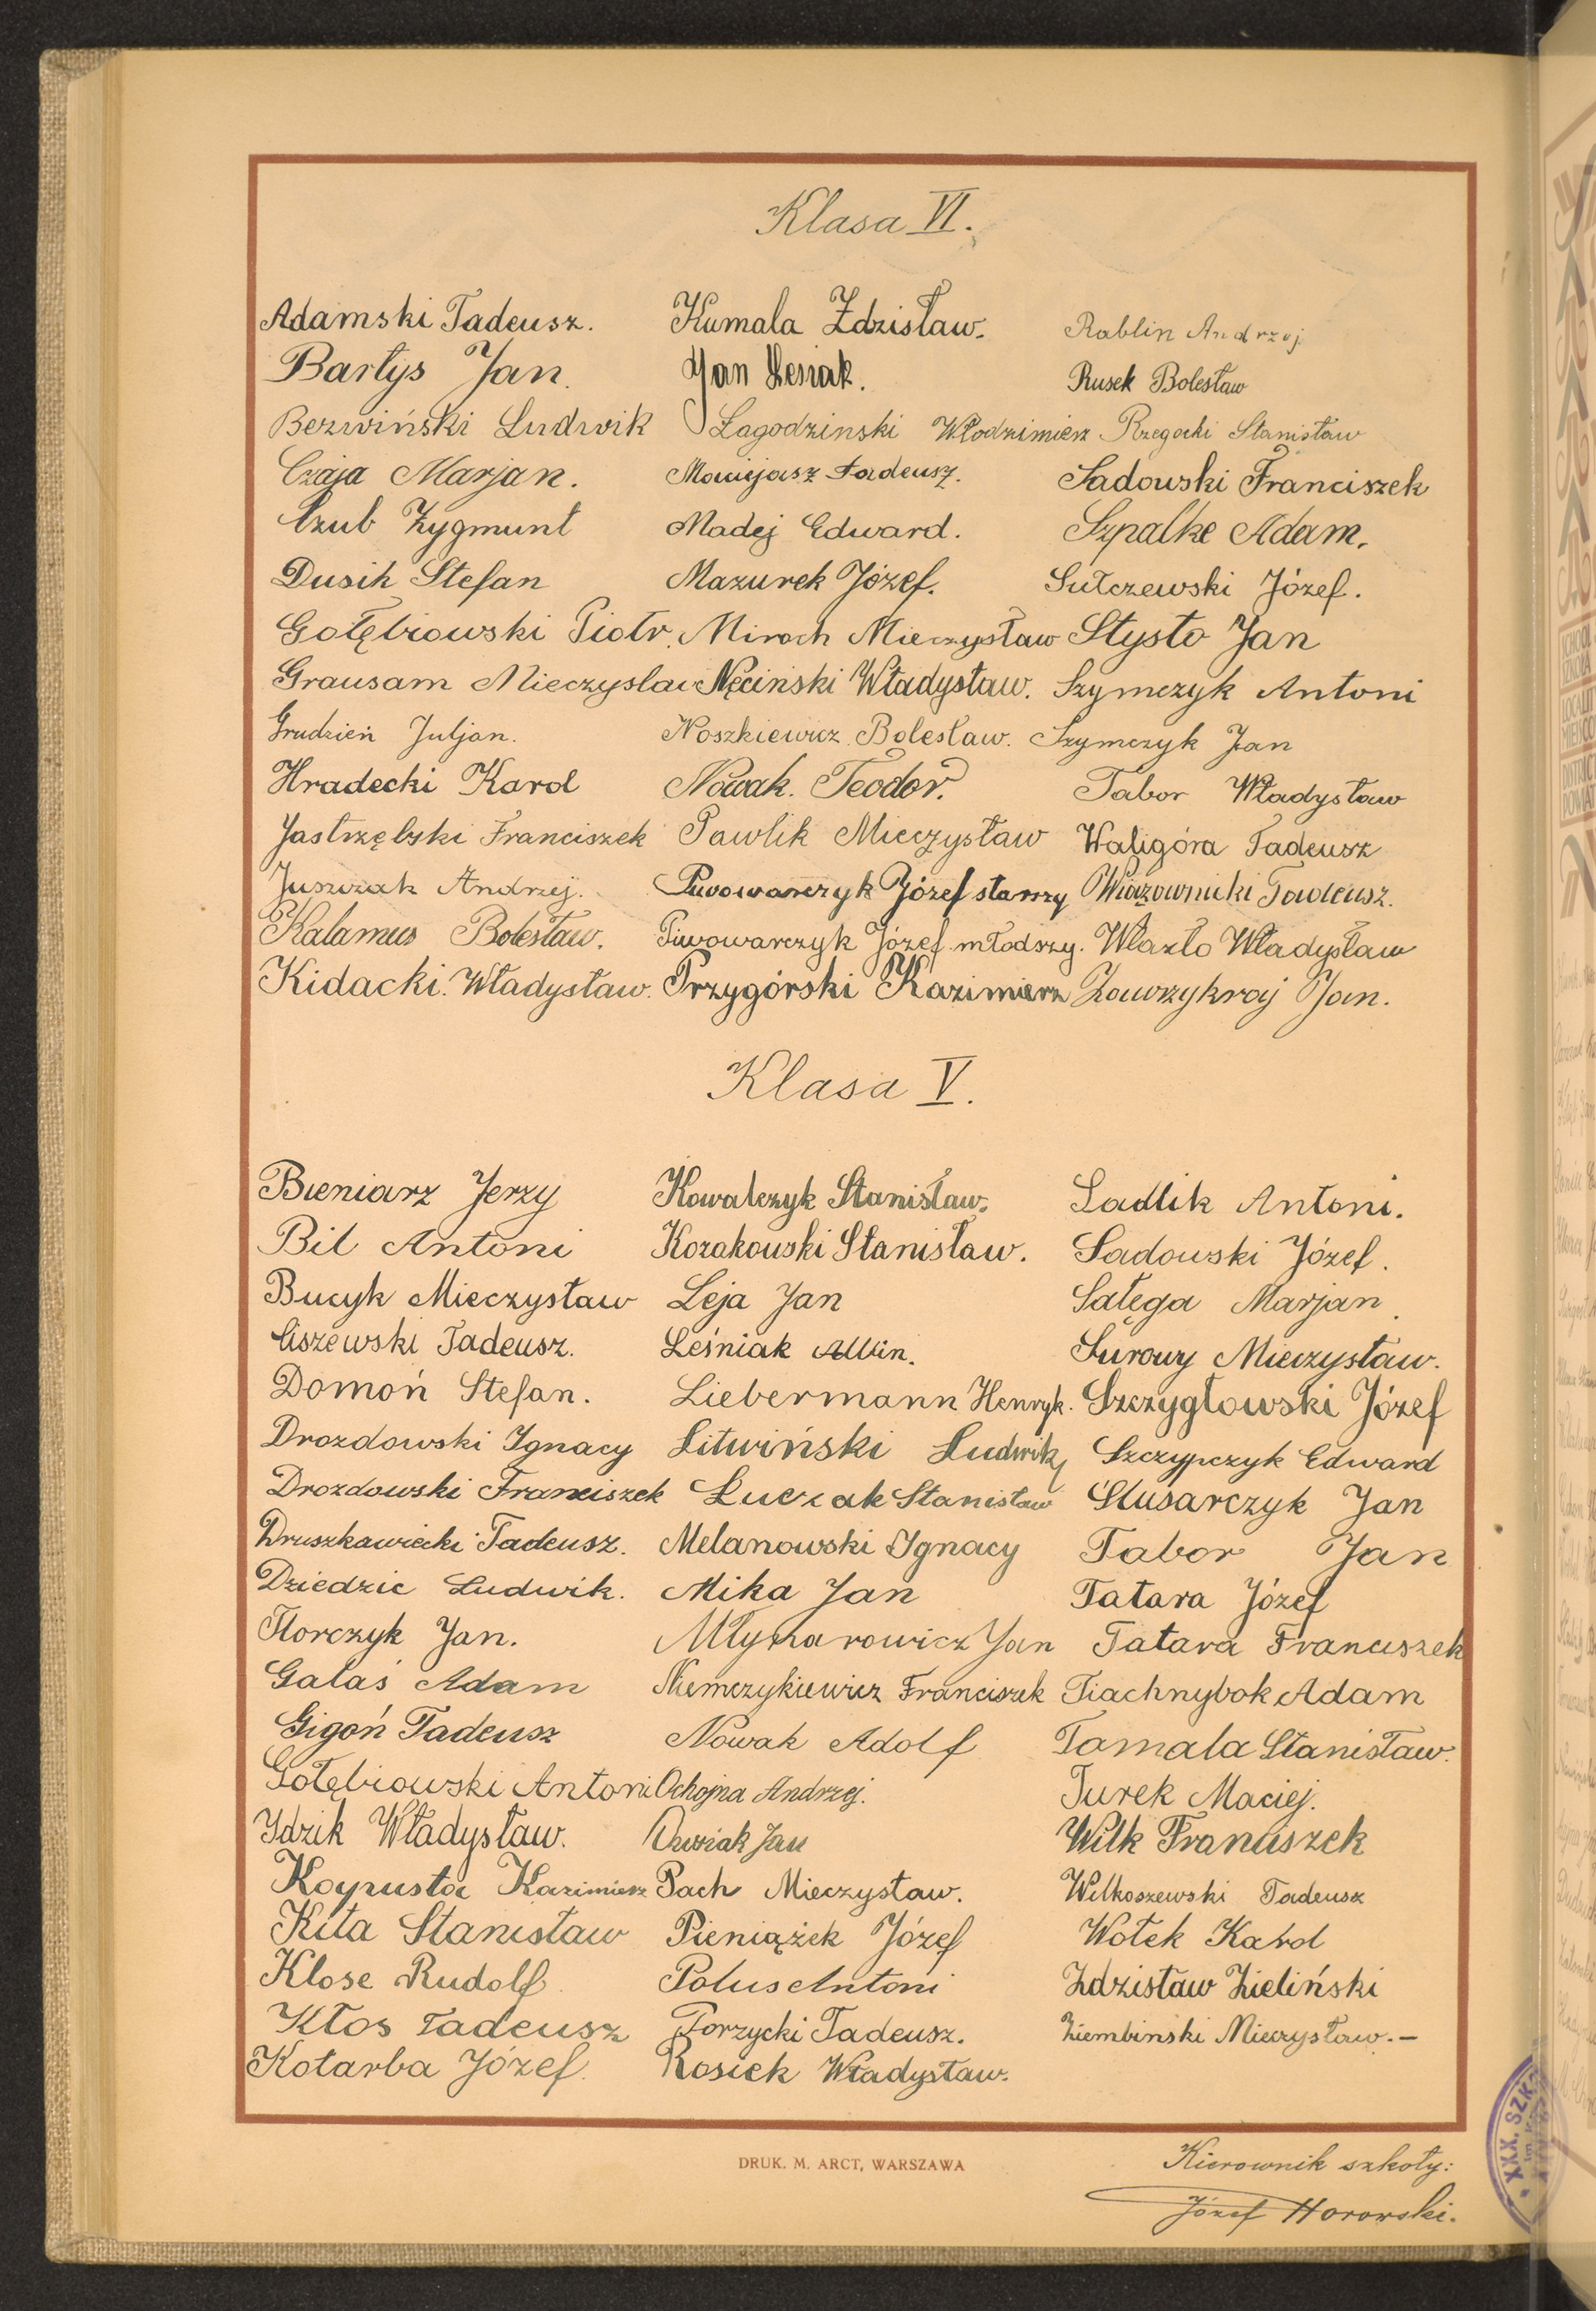 Klasa VI.
Adamski Tadeusz.
Bartys Jan.
Bezwiński Ludwik
Czaja Marjan.
Czub Zygmunt
Dusik Stefan
Gołębiowski Piotr.
Grausam Mieczysław
Grudzień Juljan.
Hradecki Karol
Jastrzębski Franciszek
Juszczak Andrzej.
Kalamus Bolesław.
Kidacki. Władysław.
Kumala Zdzisław.
Jan Lesiak.
Łagodzinski Włodzimierz
Maciejasz Tadeusz.
Madej Edward.
Mazurek Józef.
Miroch Mieczysław
Nęciński Władysław.
Noszkiewicz Bolesław.
Nowak. Teodor.
Pawlik Mieczysław
Piwowarczyk Józef starszy
Piwowarczyk Józef młodszy.
Przygórski Kazimierz
Rablin Andrzej
Rusek Bolesław
Rzegocki Stanisław
Sadowski Franciszek
Szpalke Adam.
Sułczewski Józef.
Stysło Jan
Szymczyk Antoni
Szymczyk Jan
Tabor Władysław
Waligóra Tadeusz
Wiązownicki Tadeusz.
Wlazło Władysław
Zawrzykraj Jan.
Klasa V.
Bieniarz Jerzy
Bil Antoni
Bucyk Mieczysław
Ciszewski Tadeusz.
Domoń Stefan.
Drozdowski Ignacy
Drozdowski Franciszek
Druszkawiecki Tadeusz.
Dziedzic Ludwik.
Florczyk Jan.
Galaś Adam
Gigoń Tadeusz
Gołębiowski Antoni
Idzik Władysław.
Kapusta Kazimierz
Kita Stanisław
Klose Rudolf
Kłos Tadeusz
Kotarba Józef.
Kowalczyk Stanisław.
Kozakowski Stanisław.
Leja Jan
Leśniak Albin.
Liebermann Henryk.
Litwiński Ludwik
Łuczak Stanisław
Melanowski Ignacy
Mika Jan
Młynarowicz Jan
Niemczykiewicz Franciszek
Nowak Adolf
Ochojna Andrzej.
Jan
Pach Mieczysław.
Pieniążek Józef
Polus Antoni
Porzycki Tadeusz.
Rosiek Władysław.
Sadlik Antoni.
Sadowski Józef.
Sałęga Marjan.
Surowy Mieczysław.
Szczygłowski Józef
Szczypczyk Edward
Ślusarczyk Jan
Tabor Jan
Tatara Józef
Tatara Franciszek
Tiachnybok Adam
Tomala Stanisław.
Turek Maciej.
Wilk Franciszek
Wilkoszewski Tadeusz
Wołek Karol
Zdzisław Zieliński
Ziembinski Mieczysław.-
DRUK. M. ARCT, WARSZAWA
Kierownik szkoły:
Józef Horowski.
XXX. SZK